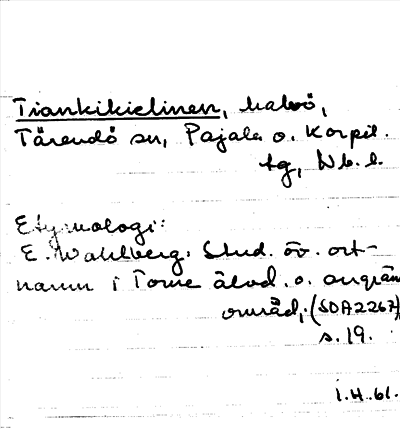 Tiankikielinen, halvö,
Tärendö sn, Pajala o. Korpil.
tg, Nb. l.
Etymologi:
E. Wahlberg. Stud. öv. ort-
namn i Torne älvd. o. angrän
område, (SOA2267)
s. 19.
1.4.61.